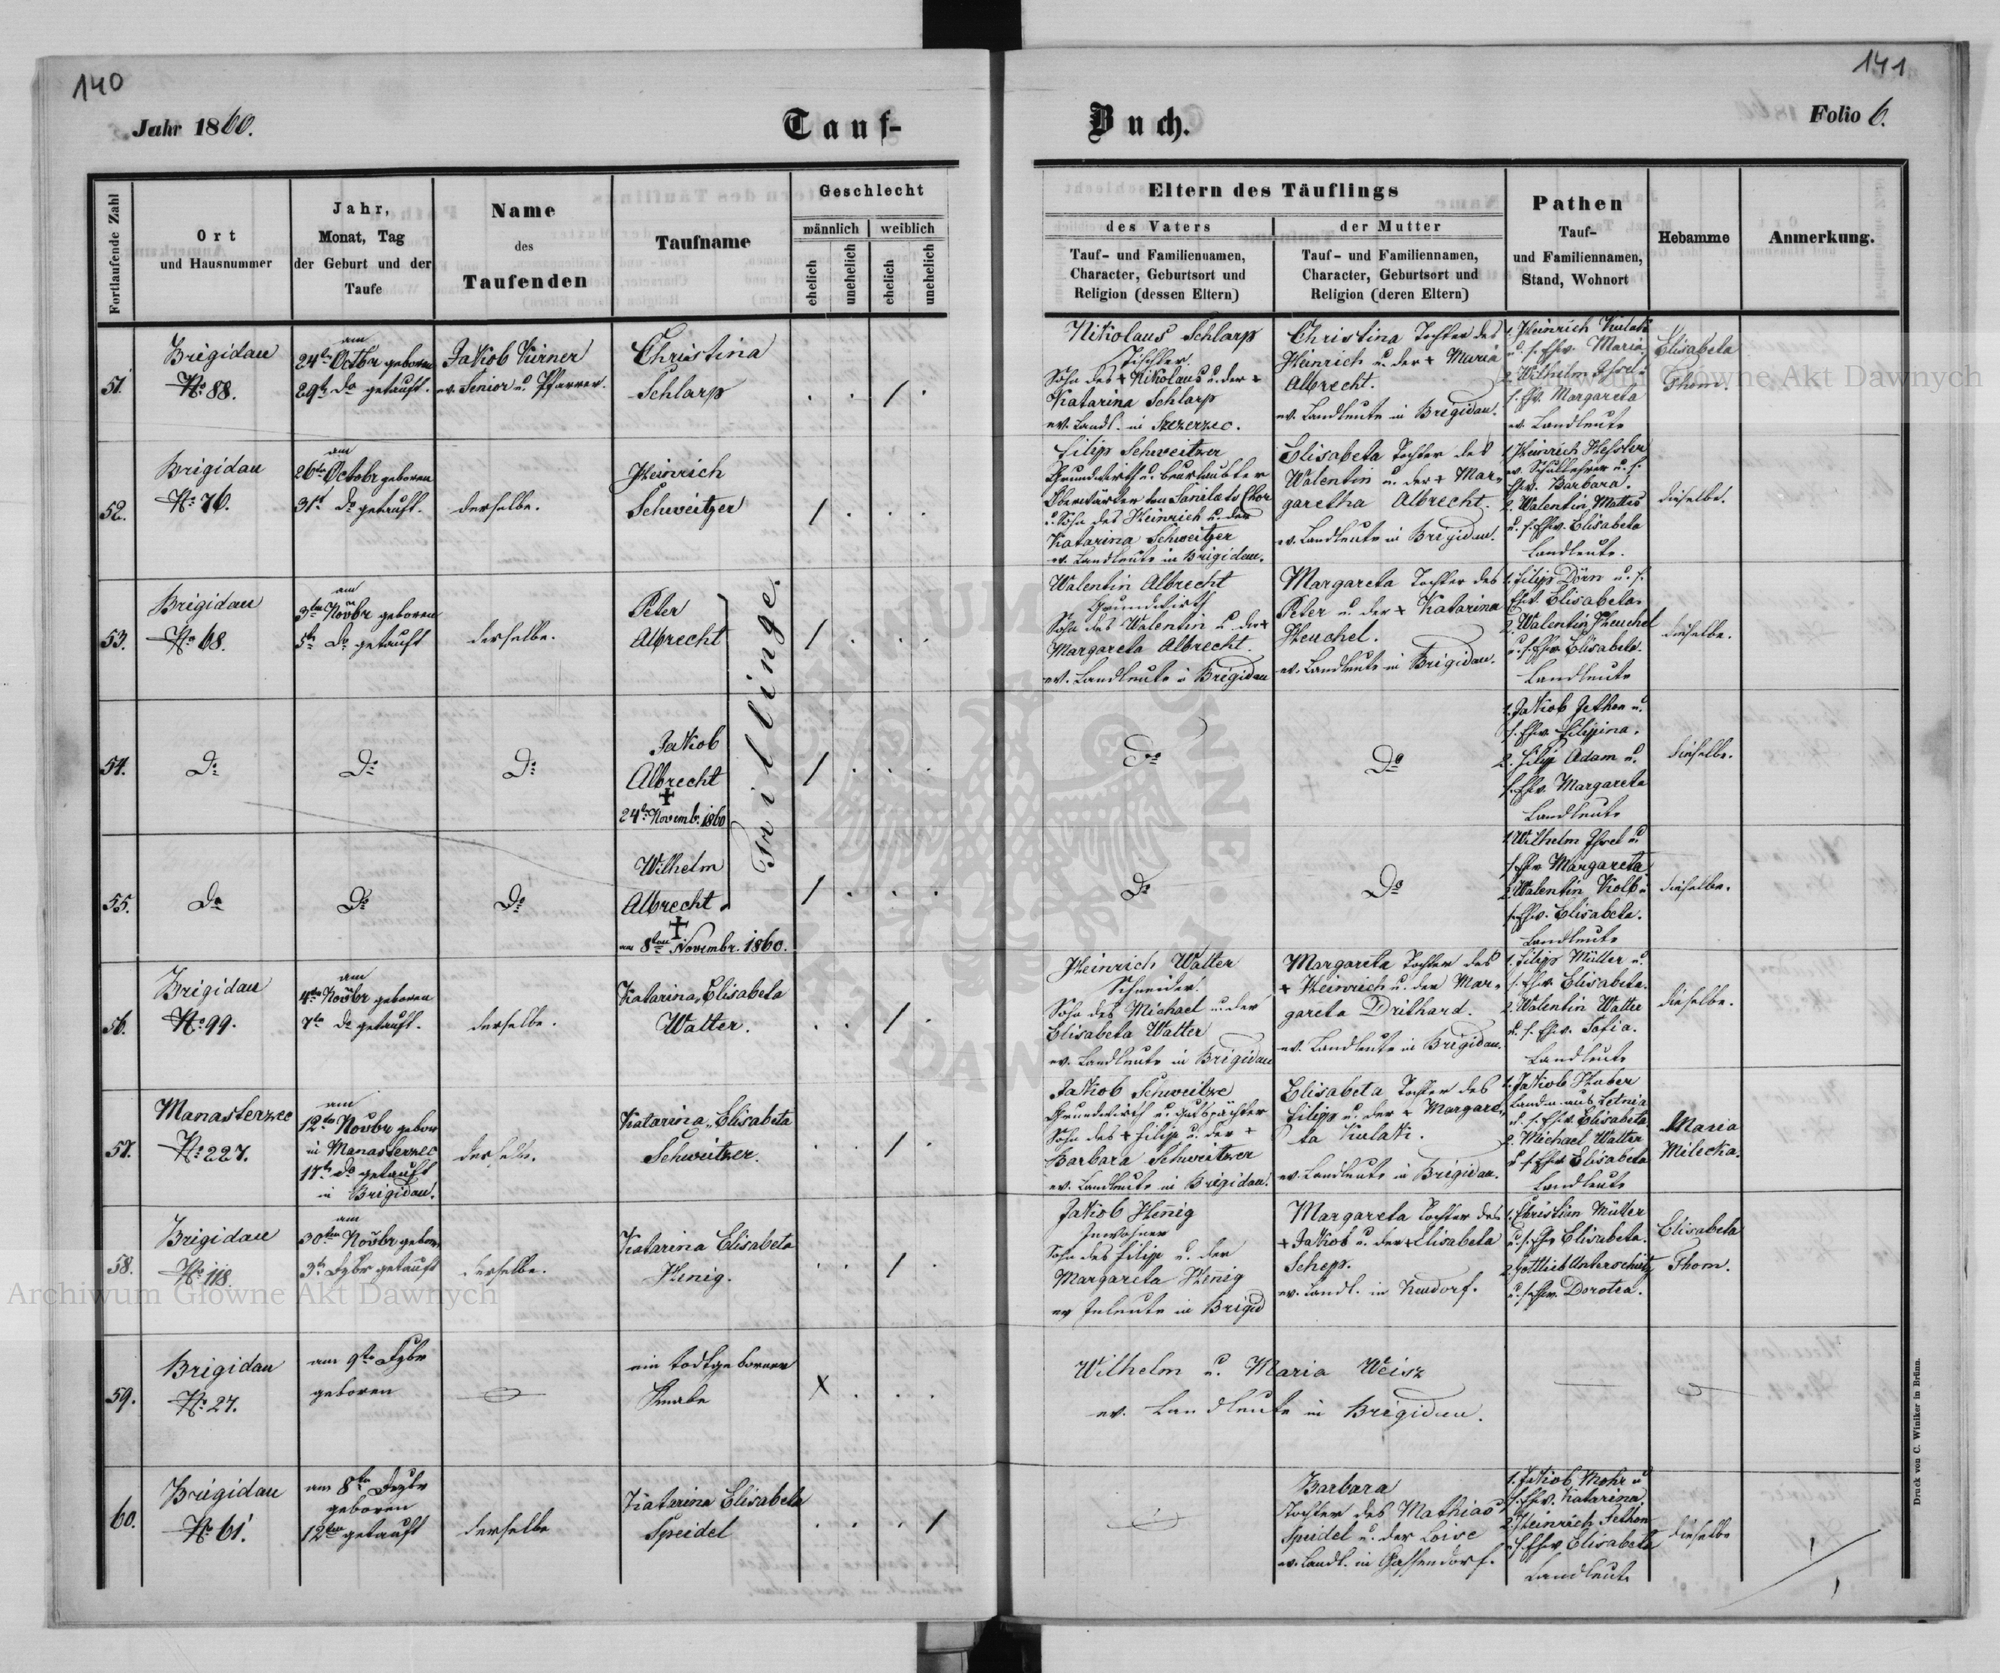 140
141
Jahr 1860.
Tauf-
Buch.
Folio 6.
Fortlaufende Zahl
Ort
und Hausnummer
Jahr,
Monat, Tag
der Geburt und der
Taufe
Name
des
Taufenden
Taufname
Geschlecht
männlich
weiblich
ehelich
unehelich
ehelich
unehelich
Eltern des Täuflings
des Vaters
Tauf- und Familiennamen,
Character, Geburtsort und
Religion (dessen Eltern)
der Mutter
Tauf- und Familiennamen,
Character, Geburtsort und
Religion (deren Eltern)
Pathen
Tauf-
und Familiennamen,
Stand, Wohnort
Hebamme
Anmerkung.
51.
Brigidau
No 88.
am
24ten Octbr geboren
29t do getauft.
Jakob Kürner
ev. Senior u. Pfarrer.
Christina
Schlarp
Nikolaus Schlarp
Tischler
Sohn des + Nikolaus u. der +
Katarina Schlarp
ev. Landl. in Szczerzec.
Christina Tochter des
Heinrich u. der + Maria
Albrecht.
ev. Landleute in Brigidau.
1. Heinrich Kulak
u. s. Ehw. Maria,
2. Wilhelm
s. Ehw. Margareta
ev. Landleute
Elisabeta
Thom.
52.
Brigidau
No 76.
am
26ten Octobr geboren
31t do getauft.
derselbe.
Heinrich
Schweitzer
Filip Schweitzer
Grundwirth u. beurlaubter
u. Sohn des Heinrich u. der
Katarina Schweitzer
ev. Landleute in Brigidau.
Elisabeta Tochter des
Walentin u. der + Mar-
garetha Albrecht.
ev. Landleute in Brigidau.
1. Heinrich Hessler
ev. Schullehrer u. s.
Ehw. Barbara.
2. Walentin Mattes
u. s. Ehw. Elisabeta
Landleute.
dieselbe.
53.
Brigidau
No 68.
am
3ten Novbr geboren
5t do getauft
derselbe.
Peter
Albrecht
Drillinge.
Walentin Albrecht
Grundwirth
Sohn des Walentin u. der +
Margareta Albrecht.
ev. Landleute i Brigidau
Margareta Tochter des
Peter u. der + Katarina
Heuchel.
ev. Landleute in Brigidau.
1. Filip Dörn u. s.
Ehw. Elisabeta.
2. Walentin Heuchel
u. s. Ehw. Elisabeta.
Landleute
dieselbe.
54.
Do
Do
Do
Jakob
Albrecht
+
24ten Novemb. 1860
Do
Do
1. Jakob Jethon u.
s. Ehw. Filipina.
2. Filip Adam u.
s. Ehw. Margareta
Landleute
dieselbe.
55.
Do
Do
Do
Wilhelm
Albrecht.
+
am 8ten Novembr. 1860.
Do
Do
1. Wilhelm
s. Ehw Margareta
2. Walentin Kolb u
s. Ehw. Elisabeta.
Landleute
dieselbe.
56.
Brigidau
No 99.
am
4ten Novbr geboren
7ten do getauft.
derselbe.
Katarina, Elisabeta
Walter.
Heinrich Walter
Schneider.
Sohn des Michael u. der
Elisabeta Walter
ev. Landleute in Brigidau
Margareta Tochter des
+ Heinrich u. der Mar-
gareta Drithard.
ev. Landleute in Brigidau.
1. Filip Müller u.
s. Ehw. Elisabeta.
2. Walentin Walter
u. s. Ehw. Sofia.
Landleute
dieselbe.
57.
Manasterzec
No 227.
am
12ten Novbr gebor
in Manasterzec
17t do getauft
in Brigidau.
derselbe.
Katarina, Elisabeta
Schweitzer.
Jakob Schweitze
Grundwirth u. Gutspächter
Sohn des + Filip u. der +
Barbara Schweitzer
ev. Landleute in Brigidau.
Elisabeta Tochter des
Filipp u. der + Margare-
ta Kulak.
ev. Landleute in Brigidau.
1. Jakob Huber
Landm. aus Letnia
u. s. Ehw. Elisabeta
2. Michael Walter
u. s. Ehw Elisabeta
Landleute
Maria
Milecka.
58.
Brigidau
No 118.
am
30ten Novbr gebor.
3t Dzbr getauft
derselbe.
Katarina Elisabeta
Henig.
Jakob Henig
Inwohner
Sohn des Filip u. der
Margareta Henig
ev Inleute in Brigid
Margareta Tochter des
+ Jakob u. der + Elisabeta
Schep.
ev. Landl. in Neudorf.
1. Christian Müller
u. s. Ehw Elisabeta.
2. Gottlieb Unterschütz
u. s. Ehw. Dorotea.
Elisabeta
Thom.
59.
Brigidau
No 27.
am 9ten Dzbr
geboren
ein todtgeborner
Knabe
Wilhelm u. Maria Weisz
ev. Landleute in Brigidau.
60.
Brigidau
No 61.
am 8ten Dezbr
geboren
12ten getauft
derselbe
Katarina Elisabeta
Speidel
Barbara
Tochter des Mathias
Speidel u. der Loise
ev. Landl. in Gassendorf.
1. Jakob Mohr u
s. Ehw. Katarina
2. Heinrich Jethon
u. s. Ehw Elisabeta
Landleute
dieselbe
Druck von C. Winiker in Brünn.
Archiwum Główne Akt Dawnych
Archiwum Główne Akt Dawnych